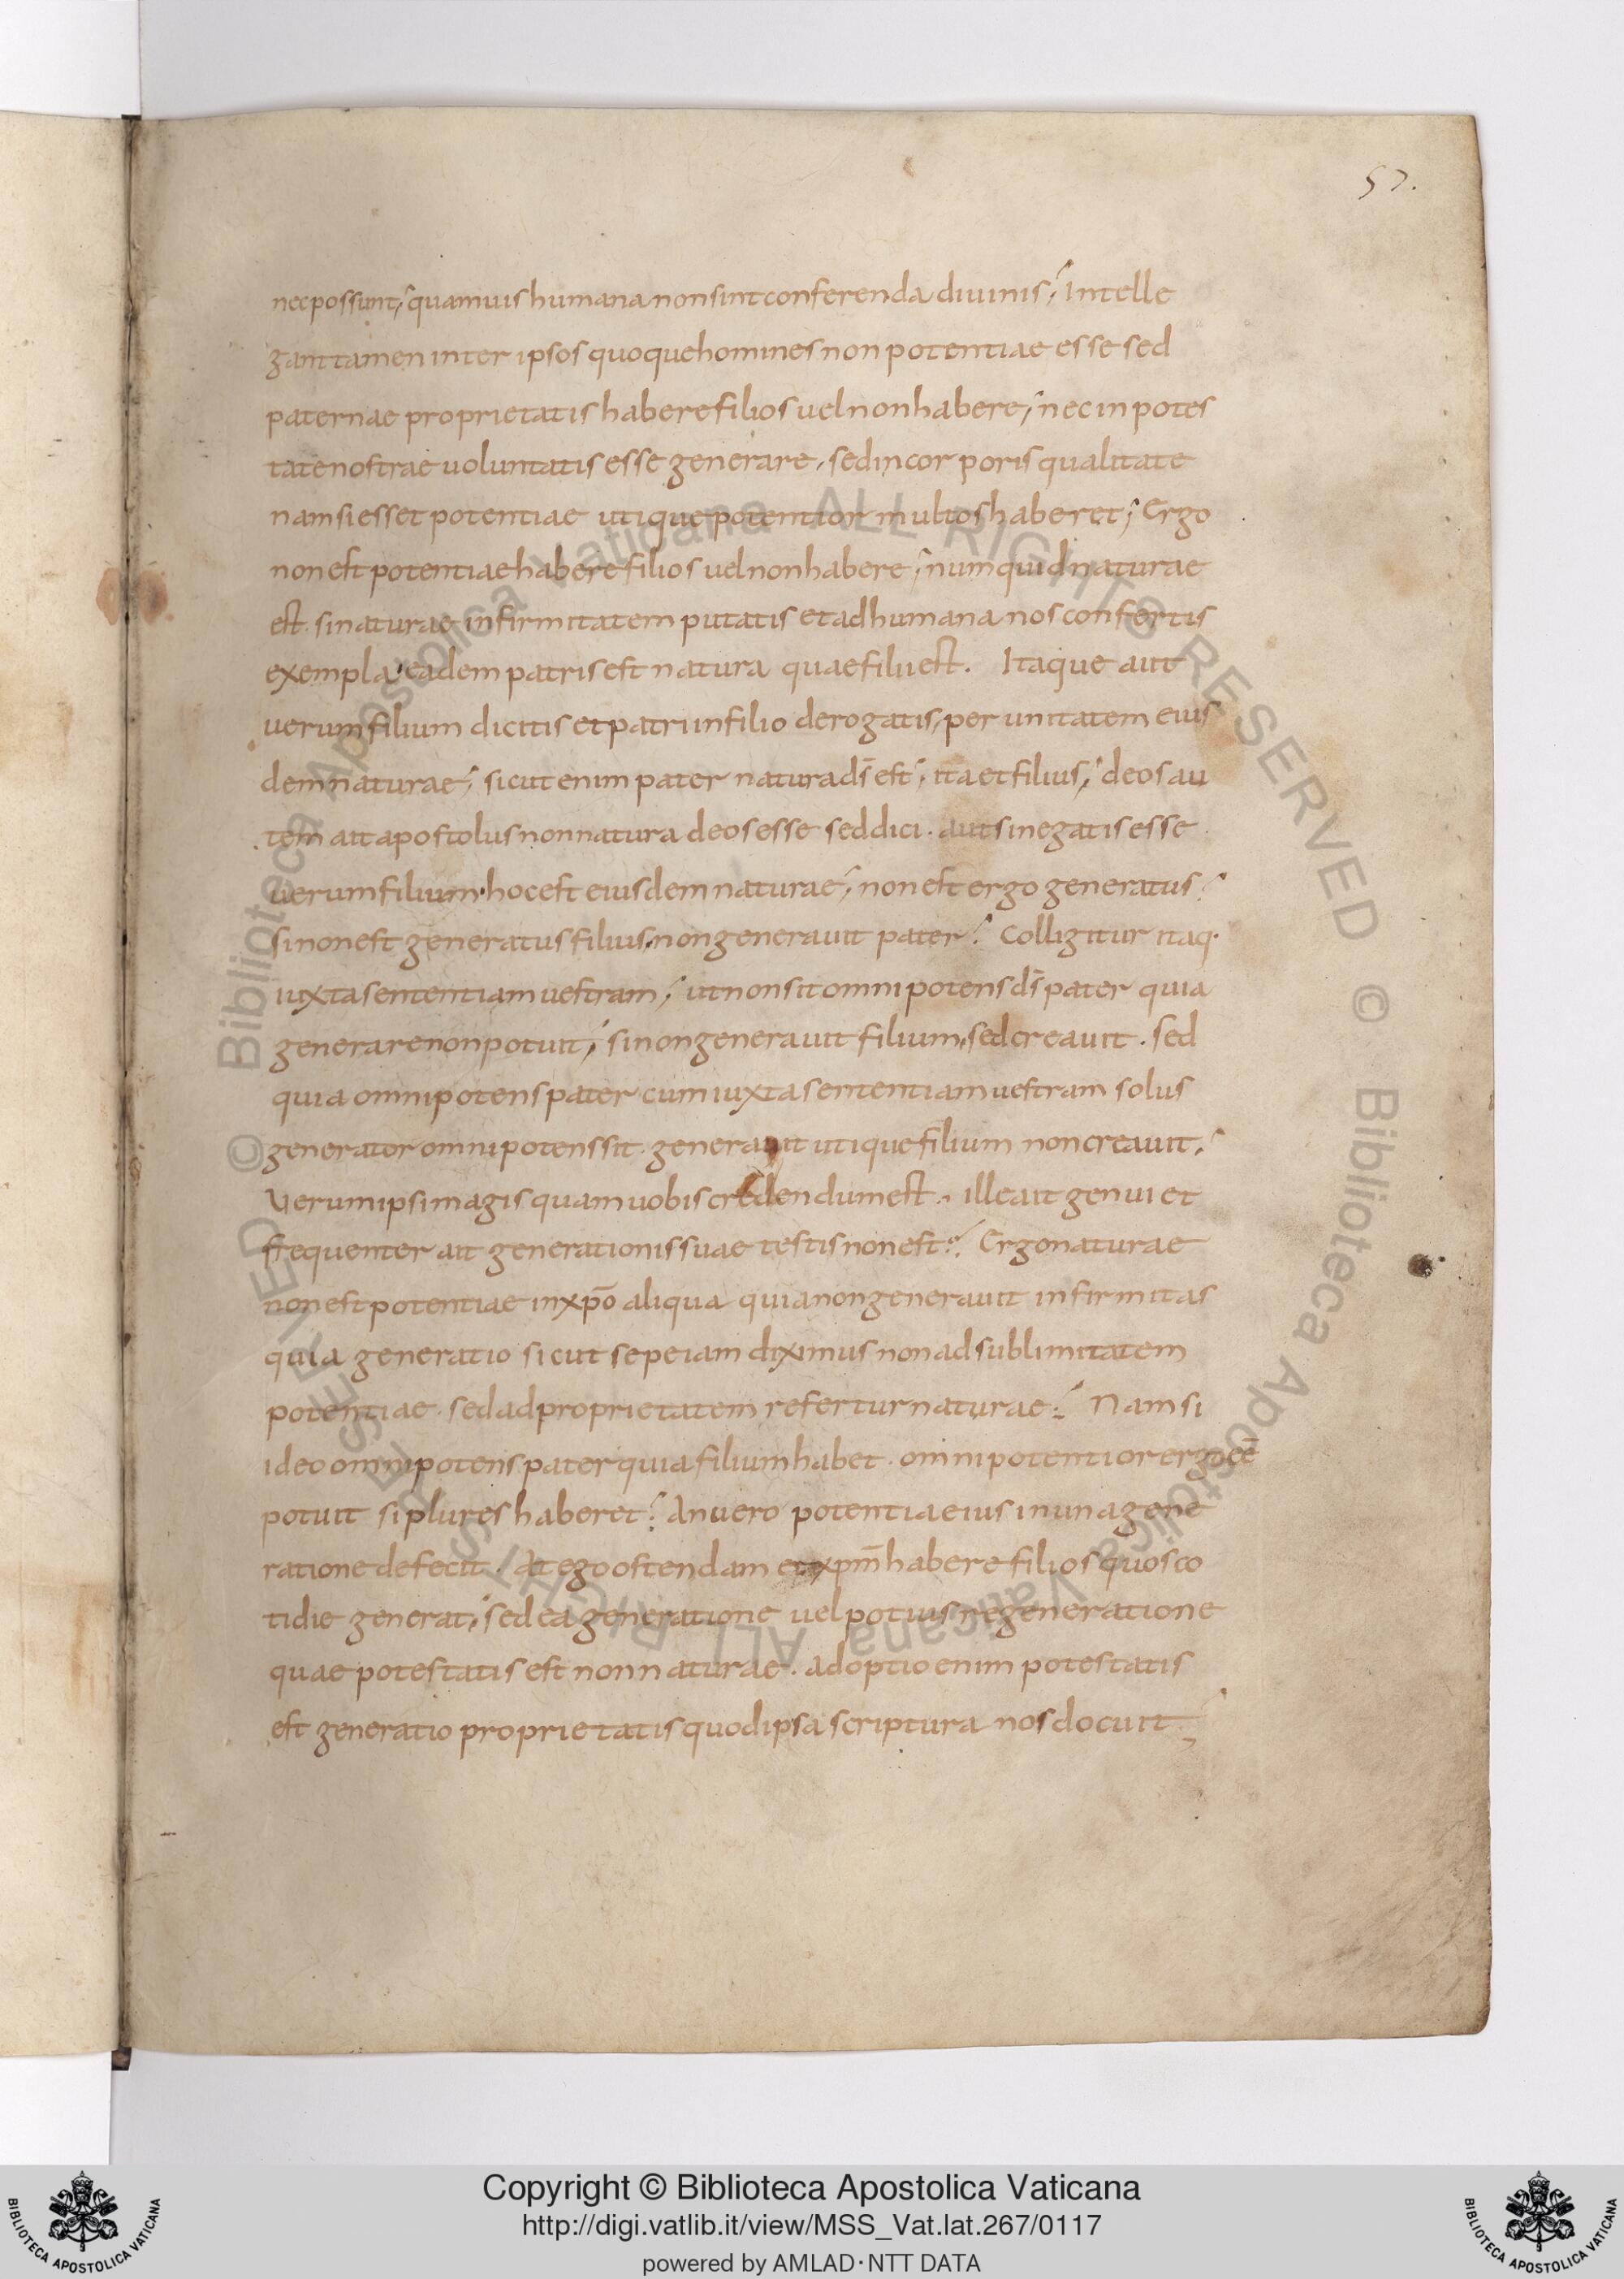 57.
nec possunt; quamuis humana non sint conferenda diuinis; Intelle
gant tamen inter ipsos quoque homines non potentiae esse sed
paternae proprietatis habere filios uel non habere; nec in potes
tate nostrae uoluntatis esse generare, sed in corporis qualitate
nam si esset potentiae utique potentior multos haberet; Ergo
non est potentiae habere filios uel non habere; numquid naturae
est. si naturae infirmitatem putatis et ad humana nos confertis
exempla. eadem patris est natura quae filii est. Itaque aut
uerum filium dicitis et patri in filio derogatis, per unitatem eius
dem naturae; sicut enim pater natura ds̄ est; ita et filius; deos au
tem ait apostolus non natura deos esse sed dici. aut si negatis esse
uerum filium. hoc est eiusdem naturae; non est ergo generatus;
si non est generatus filius, non generauit pater; Colligitur itaq·
iuxta sententiam uestram; ut non sit omnipotens ds̄ pater quia
generare non potuit; si non generauit filium, sed creauit. sed
quia omnipotens pater cum iuxta sententiam uestram solus
generator omnipotens sit. generauit utique filium non creauit;
Uerum ipsi magis quam uobis credendum est. ille ait genui et
frequenter ait generationis suae testis non est; Ergo naturae
non est potentiae in xp̄o aliqua quia non generauit infirmitas
quia generatio sicut sepe iam diximus non ad sublimitatem
potentiae. sed ad proprietatem refertur naturae; Nam si
ideo omnipotens pater quia filium habet. omnipotentior ergo eē
potuit si plures haberet; An uero potentia eius in una gene
ratione defecit. At ego ostendam et xpm̄ habere filios quos co
tidie generat; sed ea generatione uel potius regeneratione
quae potestatis est non naturae. adoptio enim potestatis
est generatio proprietatis quod ipsa scriptura nos docuit;
© Biblioteca Apostolica Vaticana ALL RIGHTS RESERVED © Biblioteca Apostolica Vaticana ALL RIGHTS RESERVED
Copyright © Biblioteca Apostolica Vaticana
http://digi.vatlib.it/view/MSS_Vat.lat.267/0117
powered by AMLAD·NTT DATA
BIBLIOTECA APOSTOLICA VATICANA
BIBLIOTECA APOSTOLICA VATICANA